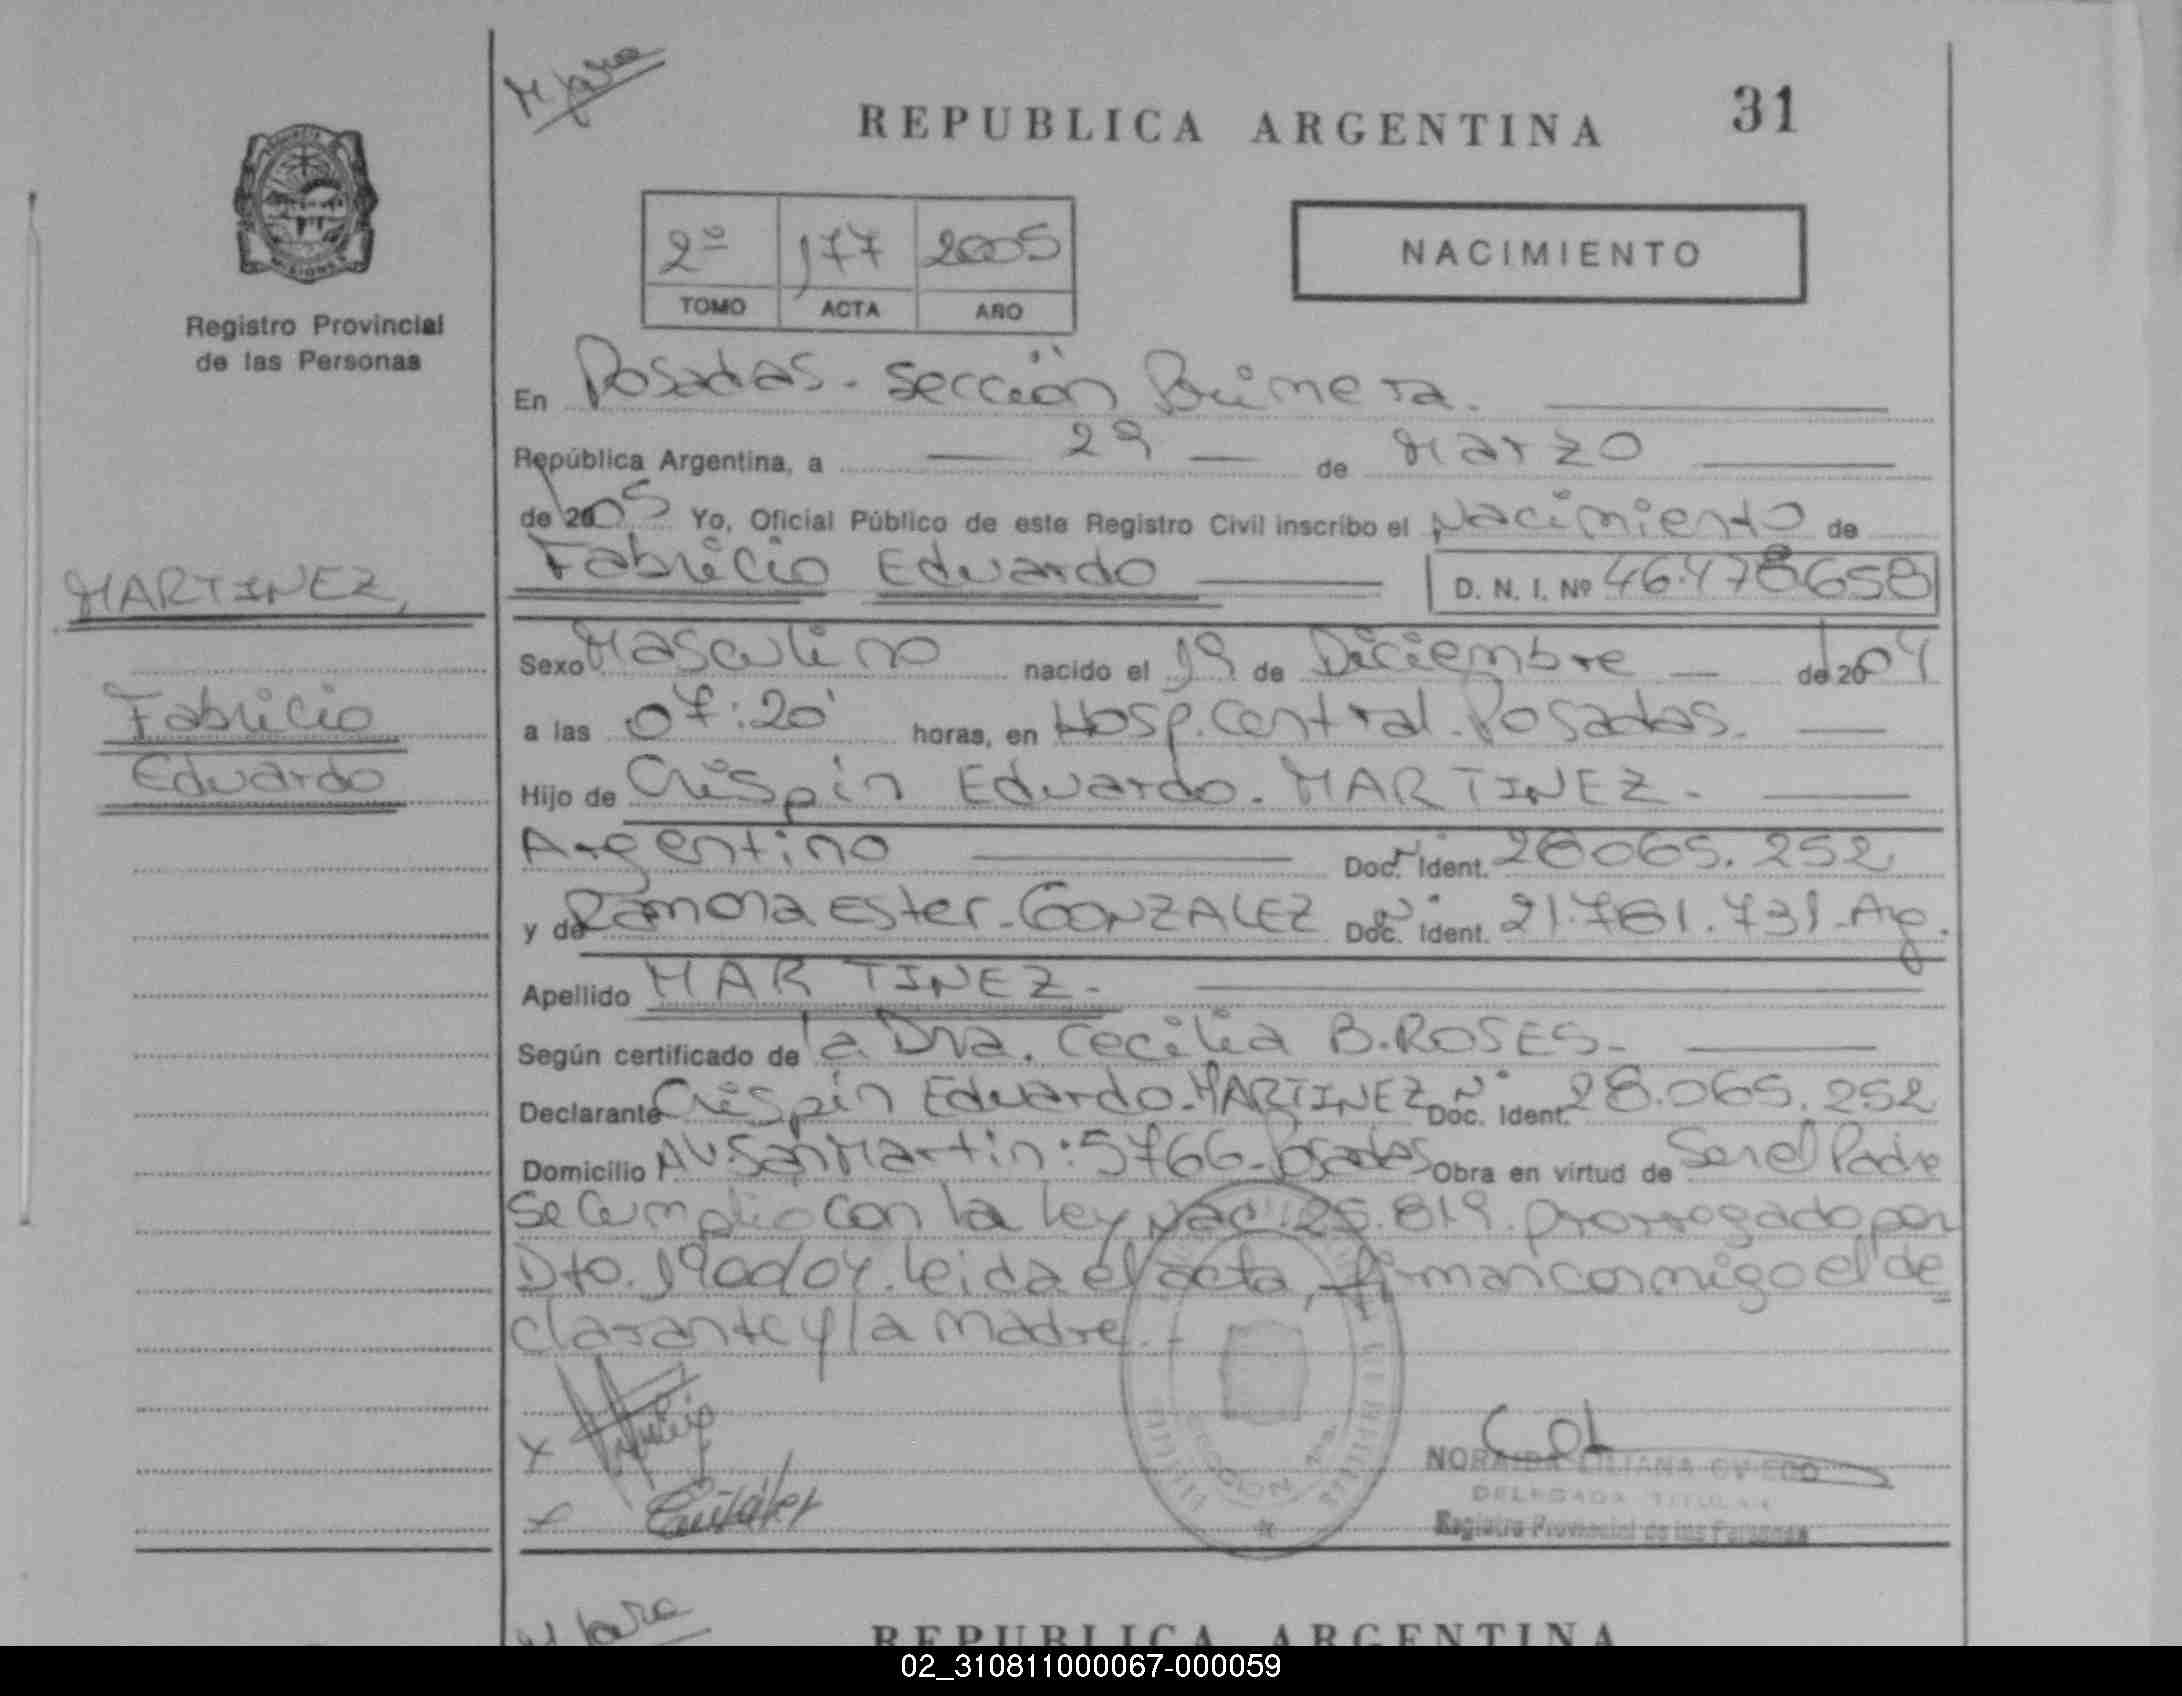 REPUBLICA ARGENTINA 31
2º 177 2005
TOMO ACTA AÑO
NACIMIENTO
Registro Provincial
de las Personas
En Posadas - Sección Primera.
República Argentina, a 29 de Marzo
de 2005 Yo, Oficial Público de este Registro Civil inscribo el Nacimiento de
Fabricio Eduardo D. N. I. Nº 46.478658
MARTINEZ,
Fabricio
Eduardo
Sexo Masculino nacido el 19 de Diciembre de 2004
a las 07:20' horas, en Hosp. Central - Posadas.
Hijo de Crispín Eduardo. MARTINEZ.
Argentino Doc. Nº Ident. 28065.252
y de Ramona Ester - GONZALEZ Doc. Nº Ident. 21.781.731 - Arg.
Apellido MARTINEZ.
Según certificado de la Dra. Cecilia B. ROSES.
Declarante Crispín Eduardo. MARTINEZ Doc. Nº Ident. 28.065.252
Domicilio Av. San Martín: 5766 - Posadas Obra en virtud de Ser el Padre
Se Cumplió con la Ley Nac. 25.819. prorrogado por
Dto. 1900/04. leida el acta, firman conmigo el de
clarante y la madre.
SECCION 1ra.
LILIANA OVIEDO
DELEGADA TITULAR
Registro Provincial de las Personas
REPUBLICA ARGENTINA
02_310811000067-000059